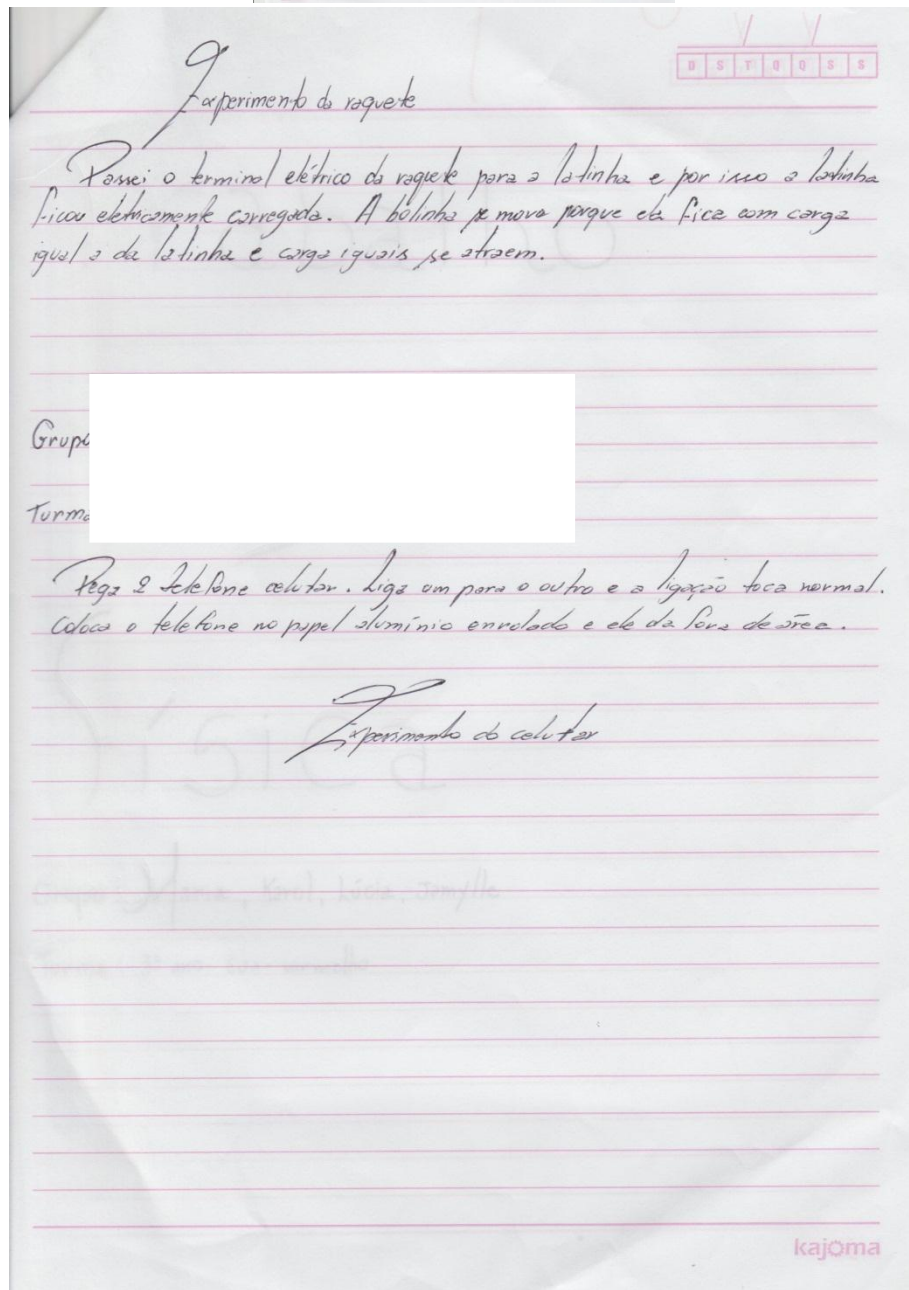 D S T Q Q S S
Experimento da raquete
Passei o terminal elétrico da raquete para a latinha e por isso a latinha
ficou eletricamente carregada. A bolinha se move porque ela fica com carga
igual a da latinha e carga iguais se atraem.
Grupo
Turma
Pega 2 telefone celular. Liga um para o outro e a ligação toca normal.
Coloca o telefone no papel alumínio enrolado e ele da fora de área.
Experimento do celular
Física
kajoma